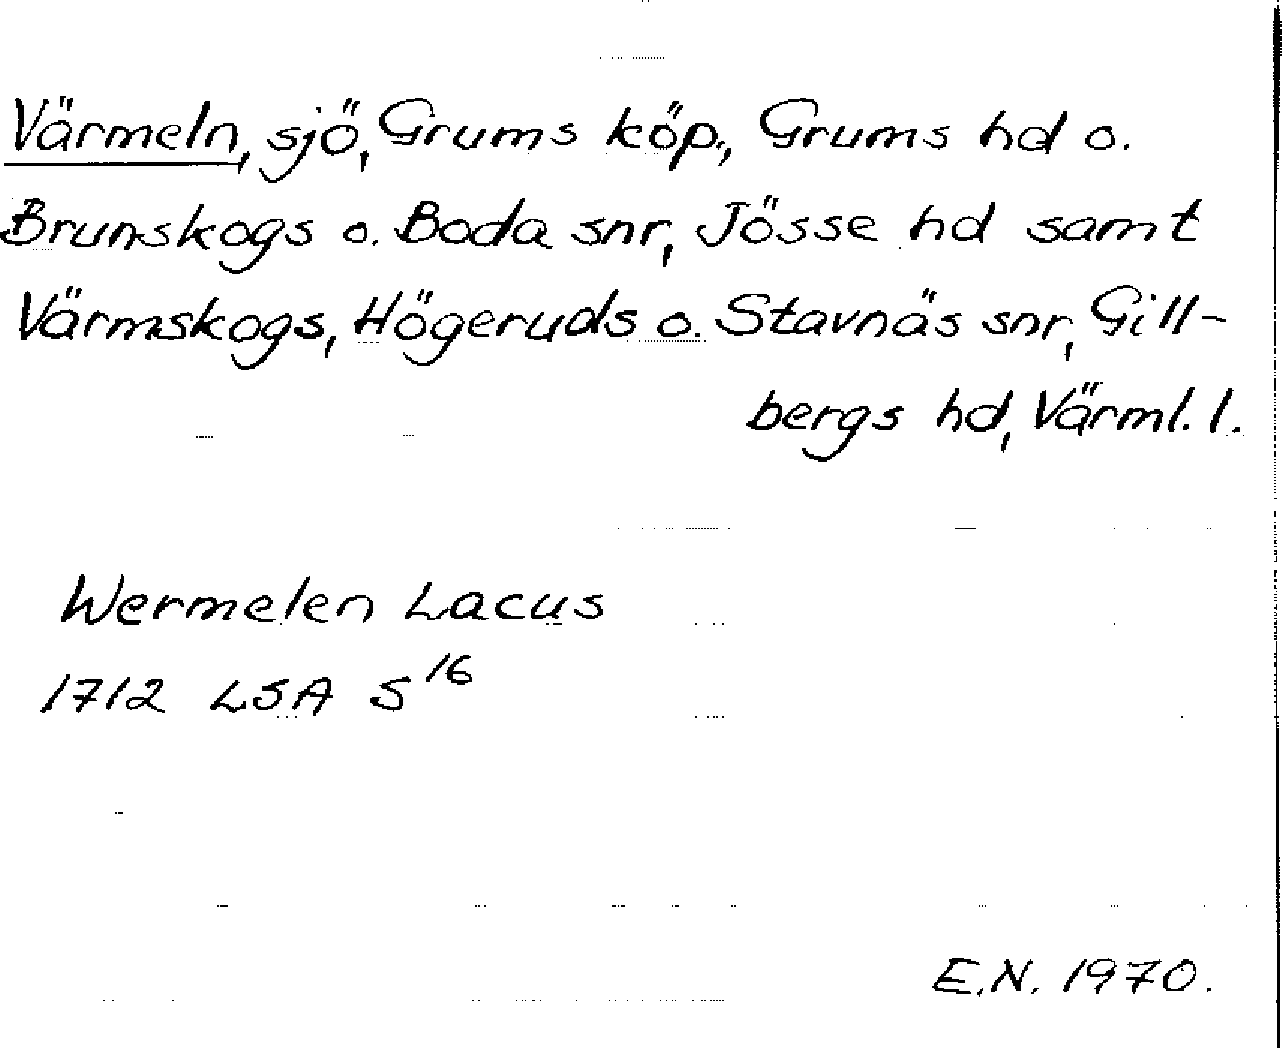 Värmeln, sjö, Grums köp., Grums hd o.
Brunskogs o. Boda snr, Jösse hd samt
Värmskogs, Högeruds o. Stavnäs snr, Gill-
bergs hd, Värml. l.
Wermelen Lacus
1712 LSA S 16
E.N. 1970.